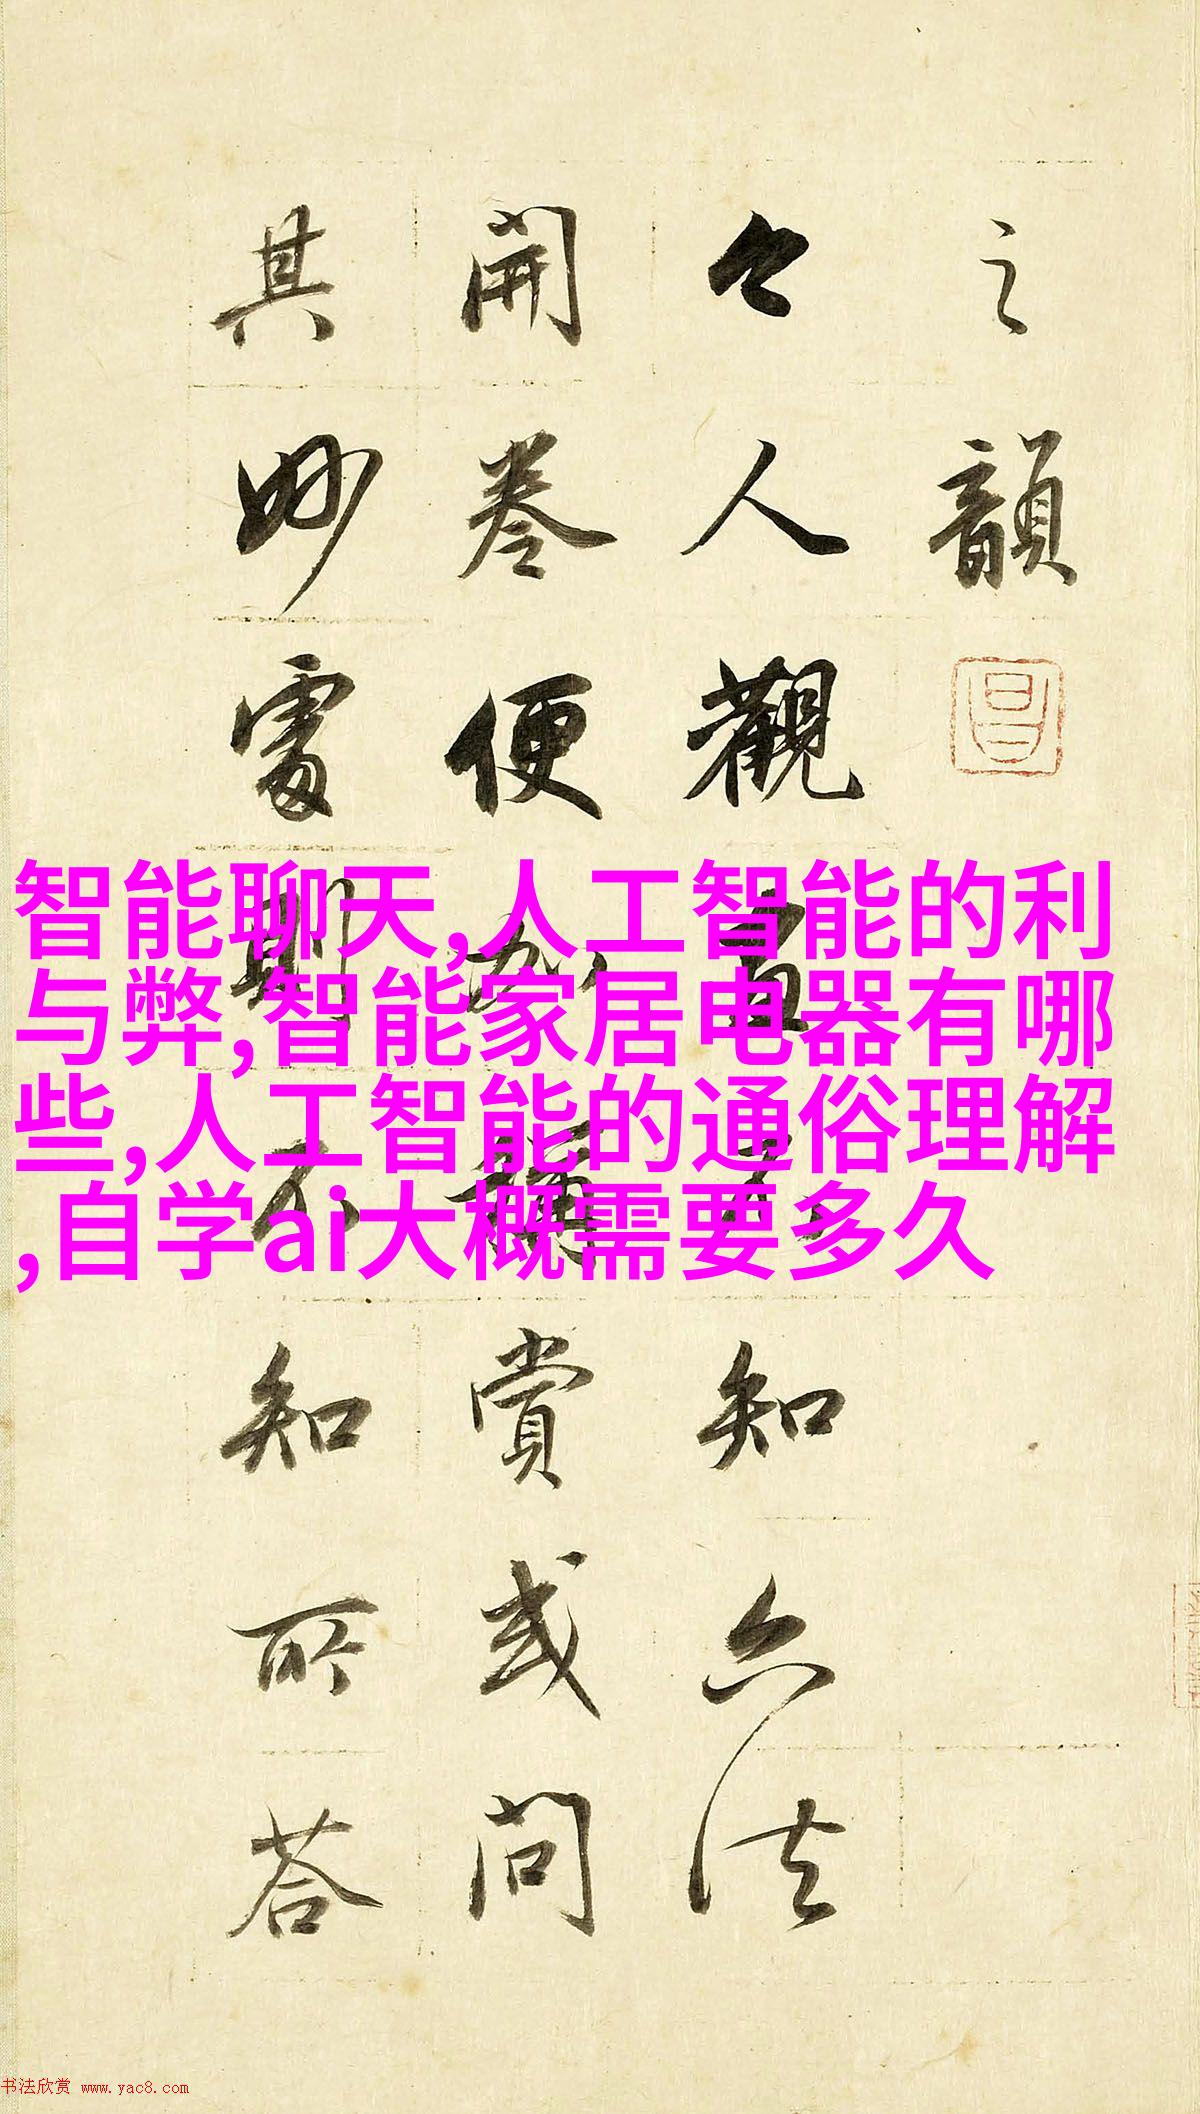 之韻
昌
今人觀畫不知六法
開卷便加稱賞或問
其妙處則不知所荅
智能聊天,人工智能的利
与弊,智能家居电器有哪
些,人工智能的通俗理解
,自学ai大概需要多久
书法欣赏 www.yac8.com